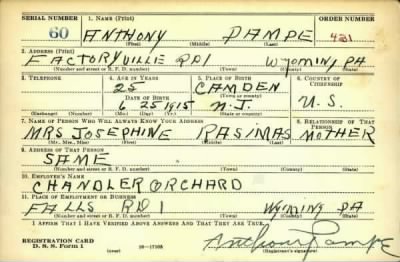 SERIAL NUMBER 1. NAME (Print) ORDER NUMBER
60 ANTHONY PAMPE 431
(First) (Middle) (Last)
2. ADDRESS (Print)
FACTORYVILLE RD1 WYOMING PA
(Number and street or R. F. D. number) (Town) (County) (State)
3. TELEPHONE 4. AGE IN YEARS 5. PLACE OF BIRTH 6. COUNTRY OF CITIZENSHIP
25 CAMDEN
DATE OF BIRTH (Town or county)
6 25 1915 N.J. U.S.
(Exchange) (Number) (Mo.) (Day) (Yr.) (State or country)
7. NAME OF PERSON WHO WILL ALWAYS KNOW YOUR ADDRESS 8. RELATIONSHIP OF THAT PERSON
MRS JOSEPHINE RASIMAS MOTHER
(Mr., Mrs., Miss) (First) (Middle) (Last)
9. ADDRESS OF THAT PERSON
SAME
(Number and street or R. F. D. number) (Town) (County) (State)
10. EMPLOYER'S NAME
CHANDLER ORCHARD
11. PLACE OF EMPLOYMENT OR BUSINESS
FALLS RD 1 Wyoming PA
(Number and street or R. F. D. number) (Town) (County) (State)
I AFFIRM THAT I HAVE VERIFIED ABOVE ANSWERS AND THAT THEY ARE TRUE.
REGISTRATION CARD
D. S. S. Form 1 16—17105 Anthony Pampe